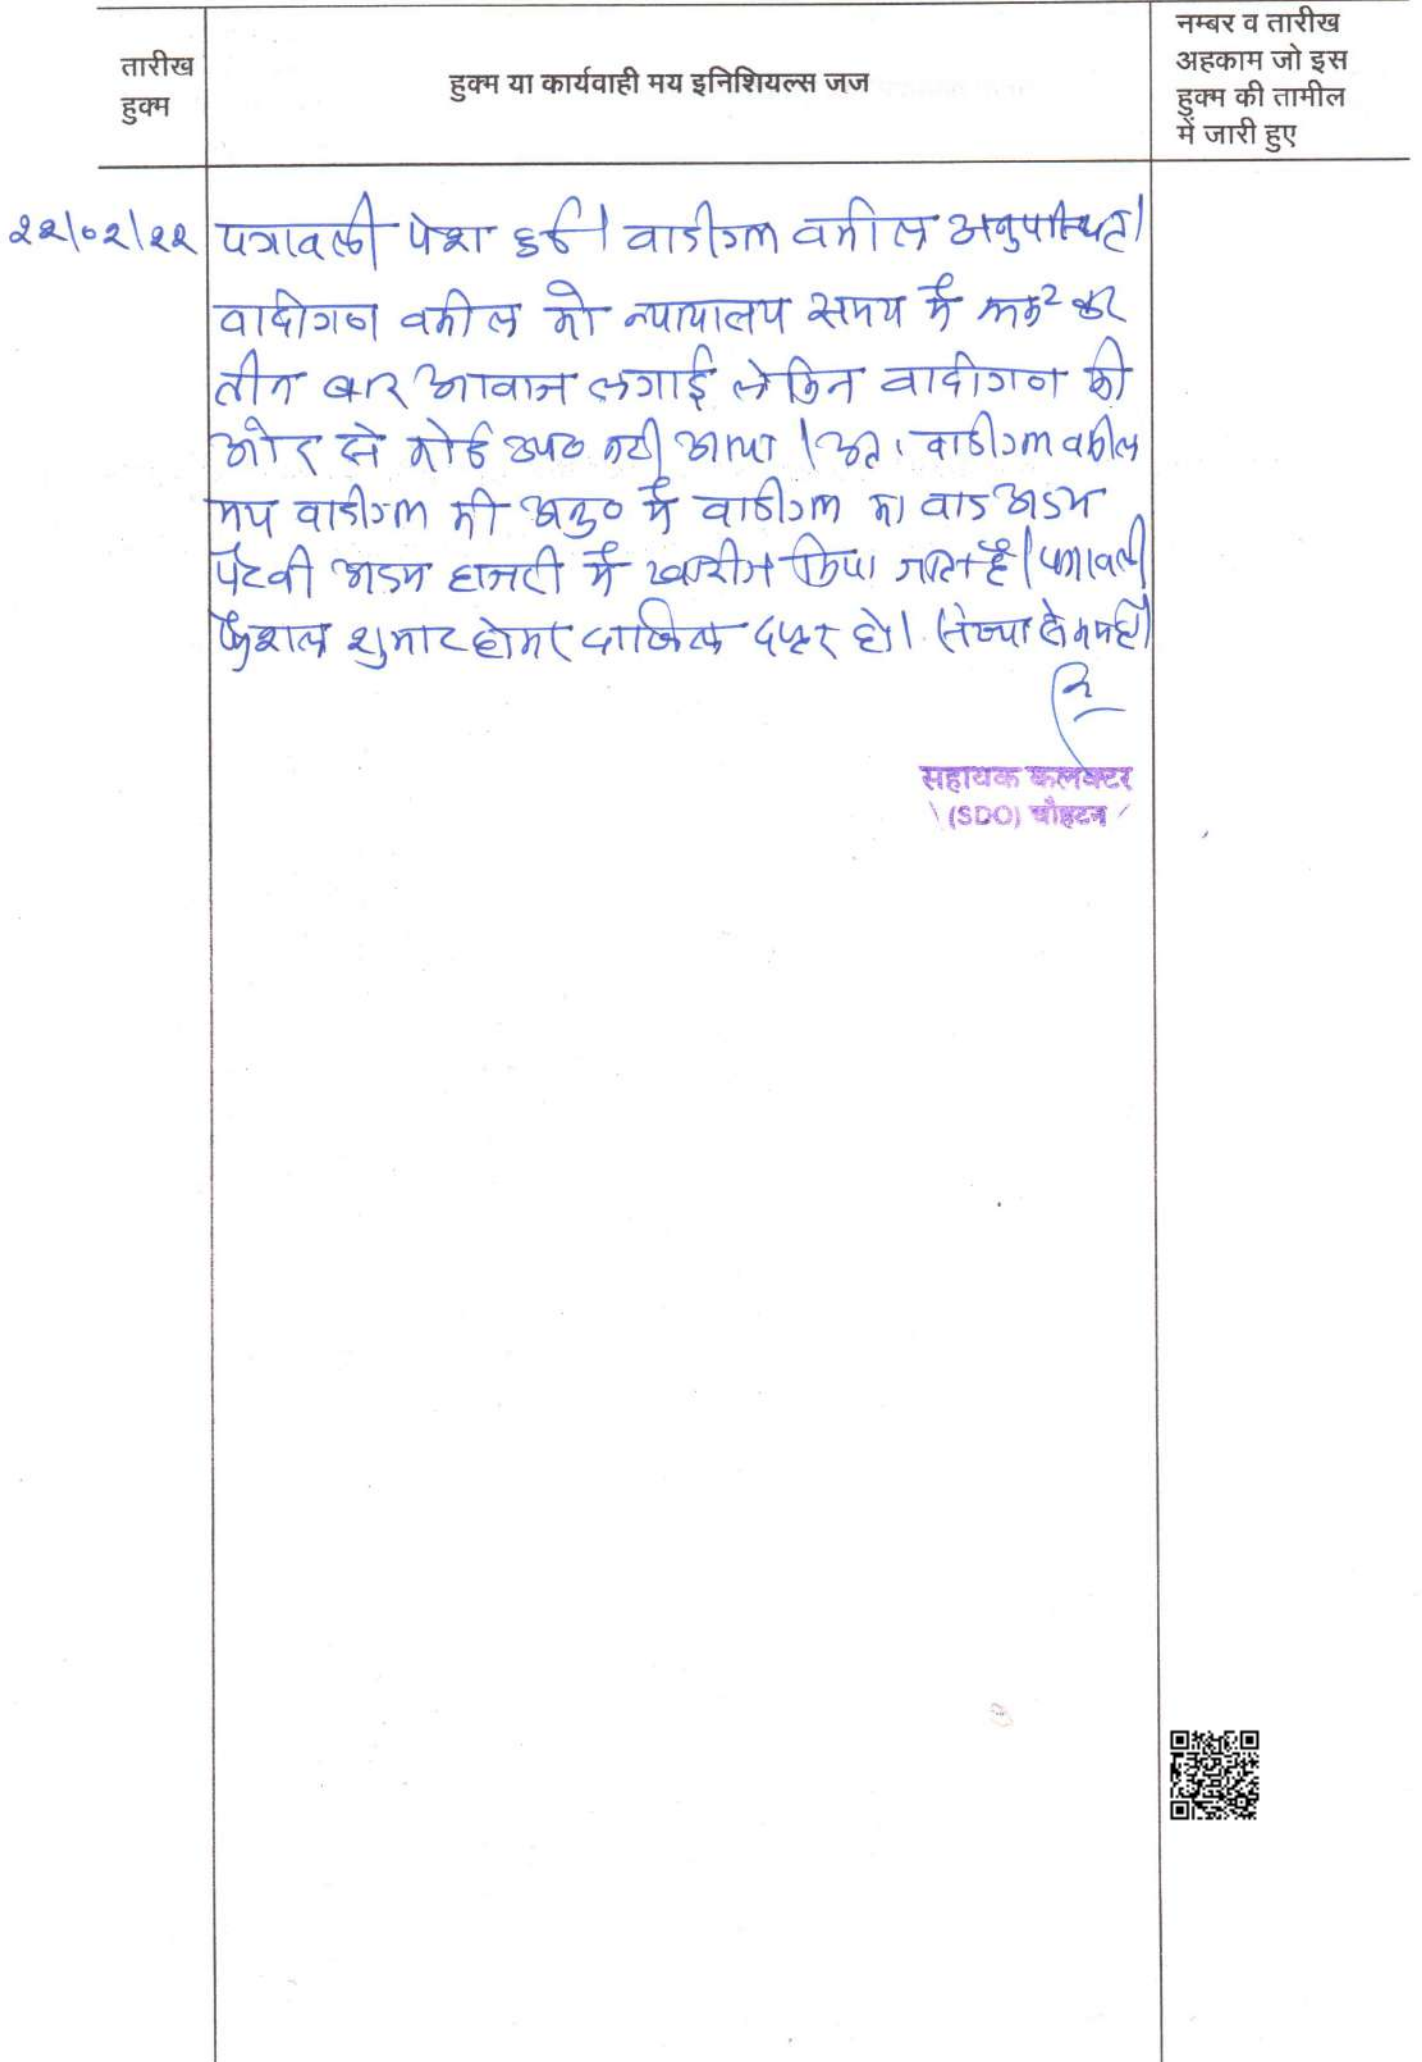 तारीख
हुक्म
हुक्म या कार्यवाही मय इनिशियल्स जज
नम्बर व तारीख
अहकाम जो इस
हुक्म की तामील
में जारी हुए
२२/०२/२२ पत्रावली पेश हुई। वादीगण वकील अनुपस्थित।
वादीगण वकील को न्यायालय समय में रूक² कर
तीन बार आवाज लगाई लेकिन वादीगण की
ओर से कोई उप० नही आया। अतः वादीगण वकील
मय वादीगण की अनु० में वादीगण का वाद अदम
पैरवी अदम हाजरी में खारीज किया जाता है। पत्रावली
फैशल शुमार होकर दाखिल दफ्तर हो।
सहायक कलक्टर
(SDO) चौहटन